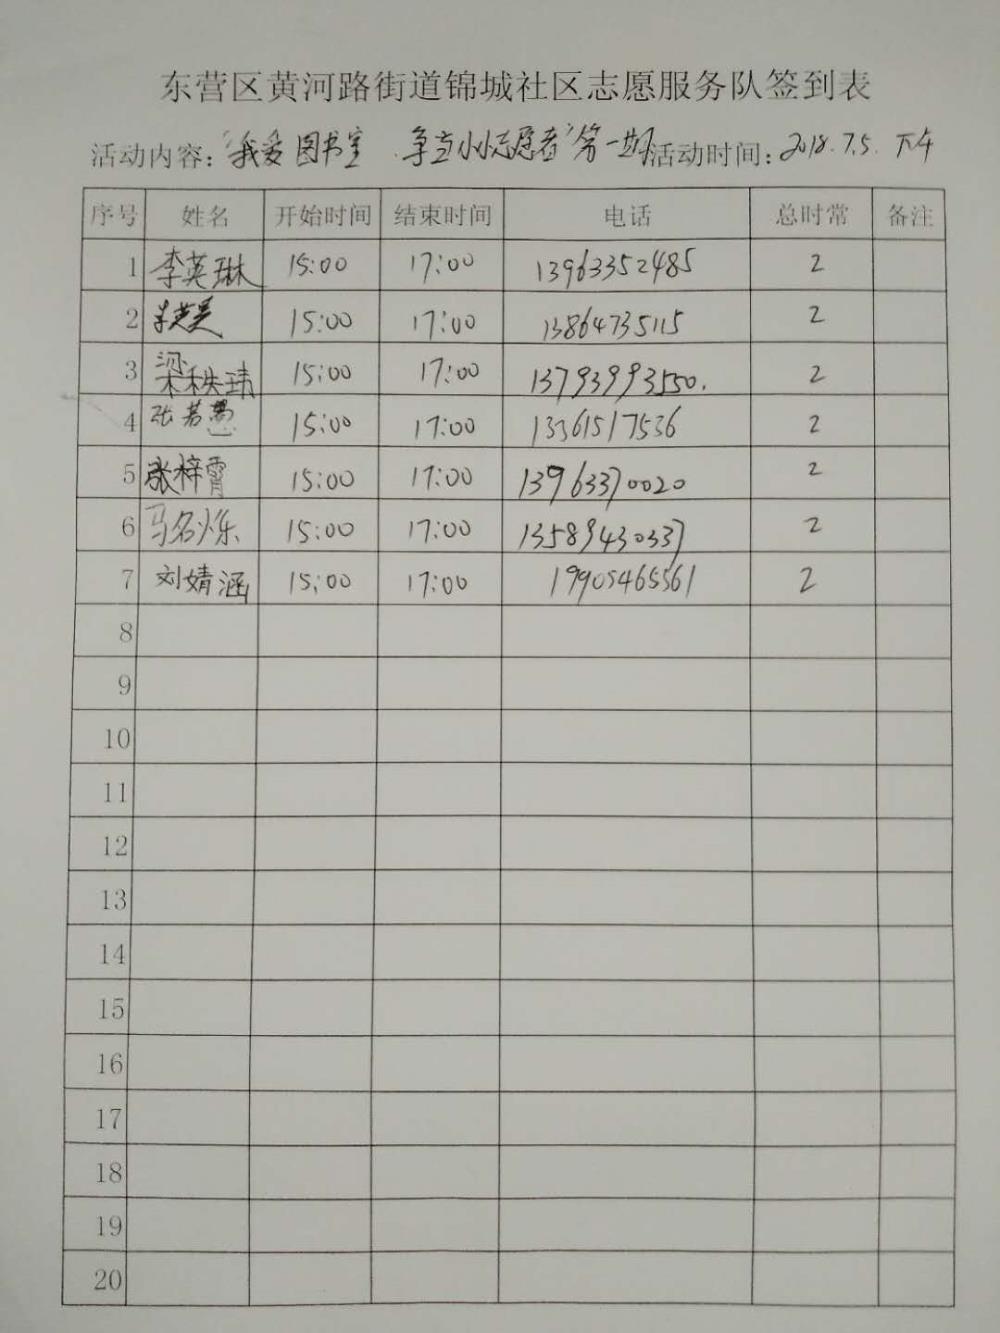 东营区黄河路街道锦城社区志愿服务队签到表
活动内容："我爱图书室 争当小小志愿者"第一期 活动时间：2018.7.5. 下午
序号 姓名 开始时间 结束时间 电话 总时常 备注
1 李英琳 15:00 17:00 13963352485 2
2 15:00 17:00 13864735115 2
3 梁秩玮 15:00 17:00 13793993550. 2
4 张若愚 15:00 17:00 13361517536 2
5 张梓霄 15:00 17:00 13963370020 2
6 马名烁 15:00 17:00 13589430337 2
7 刘婧涵 15:00 17:00 19905465561 2
8
9
10
11
12
13
14
15
16
17
18
19
20